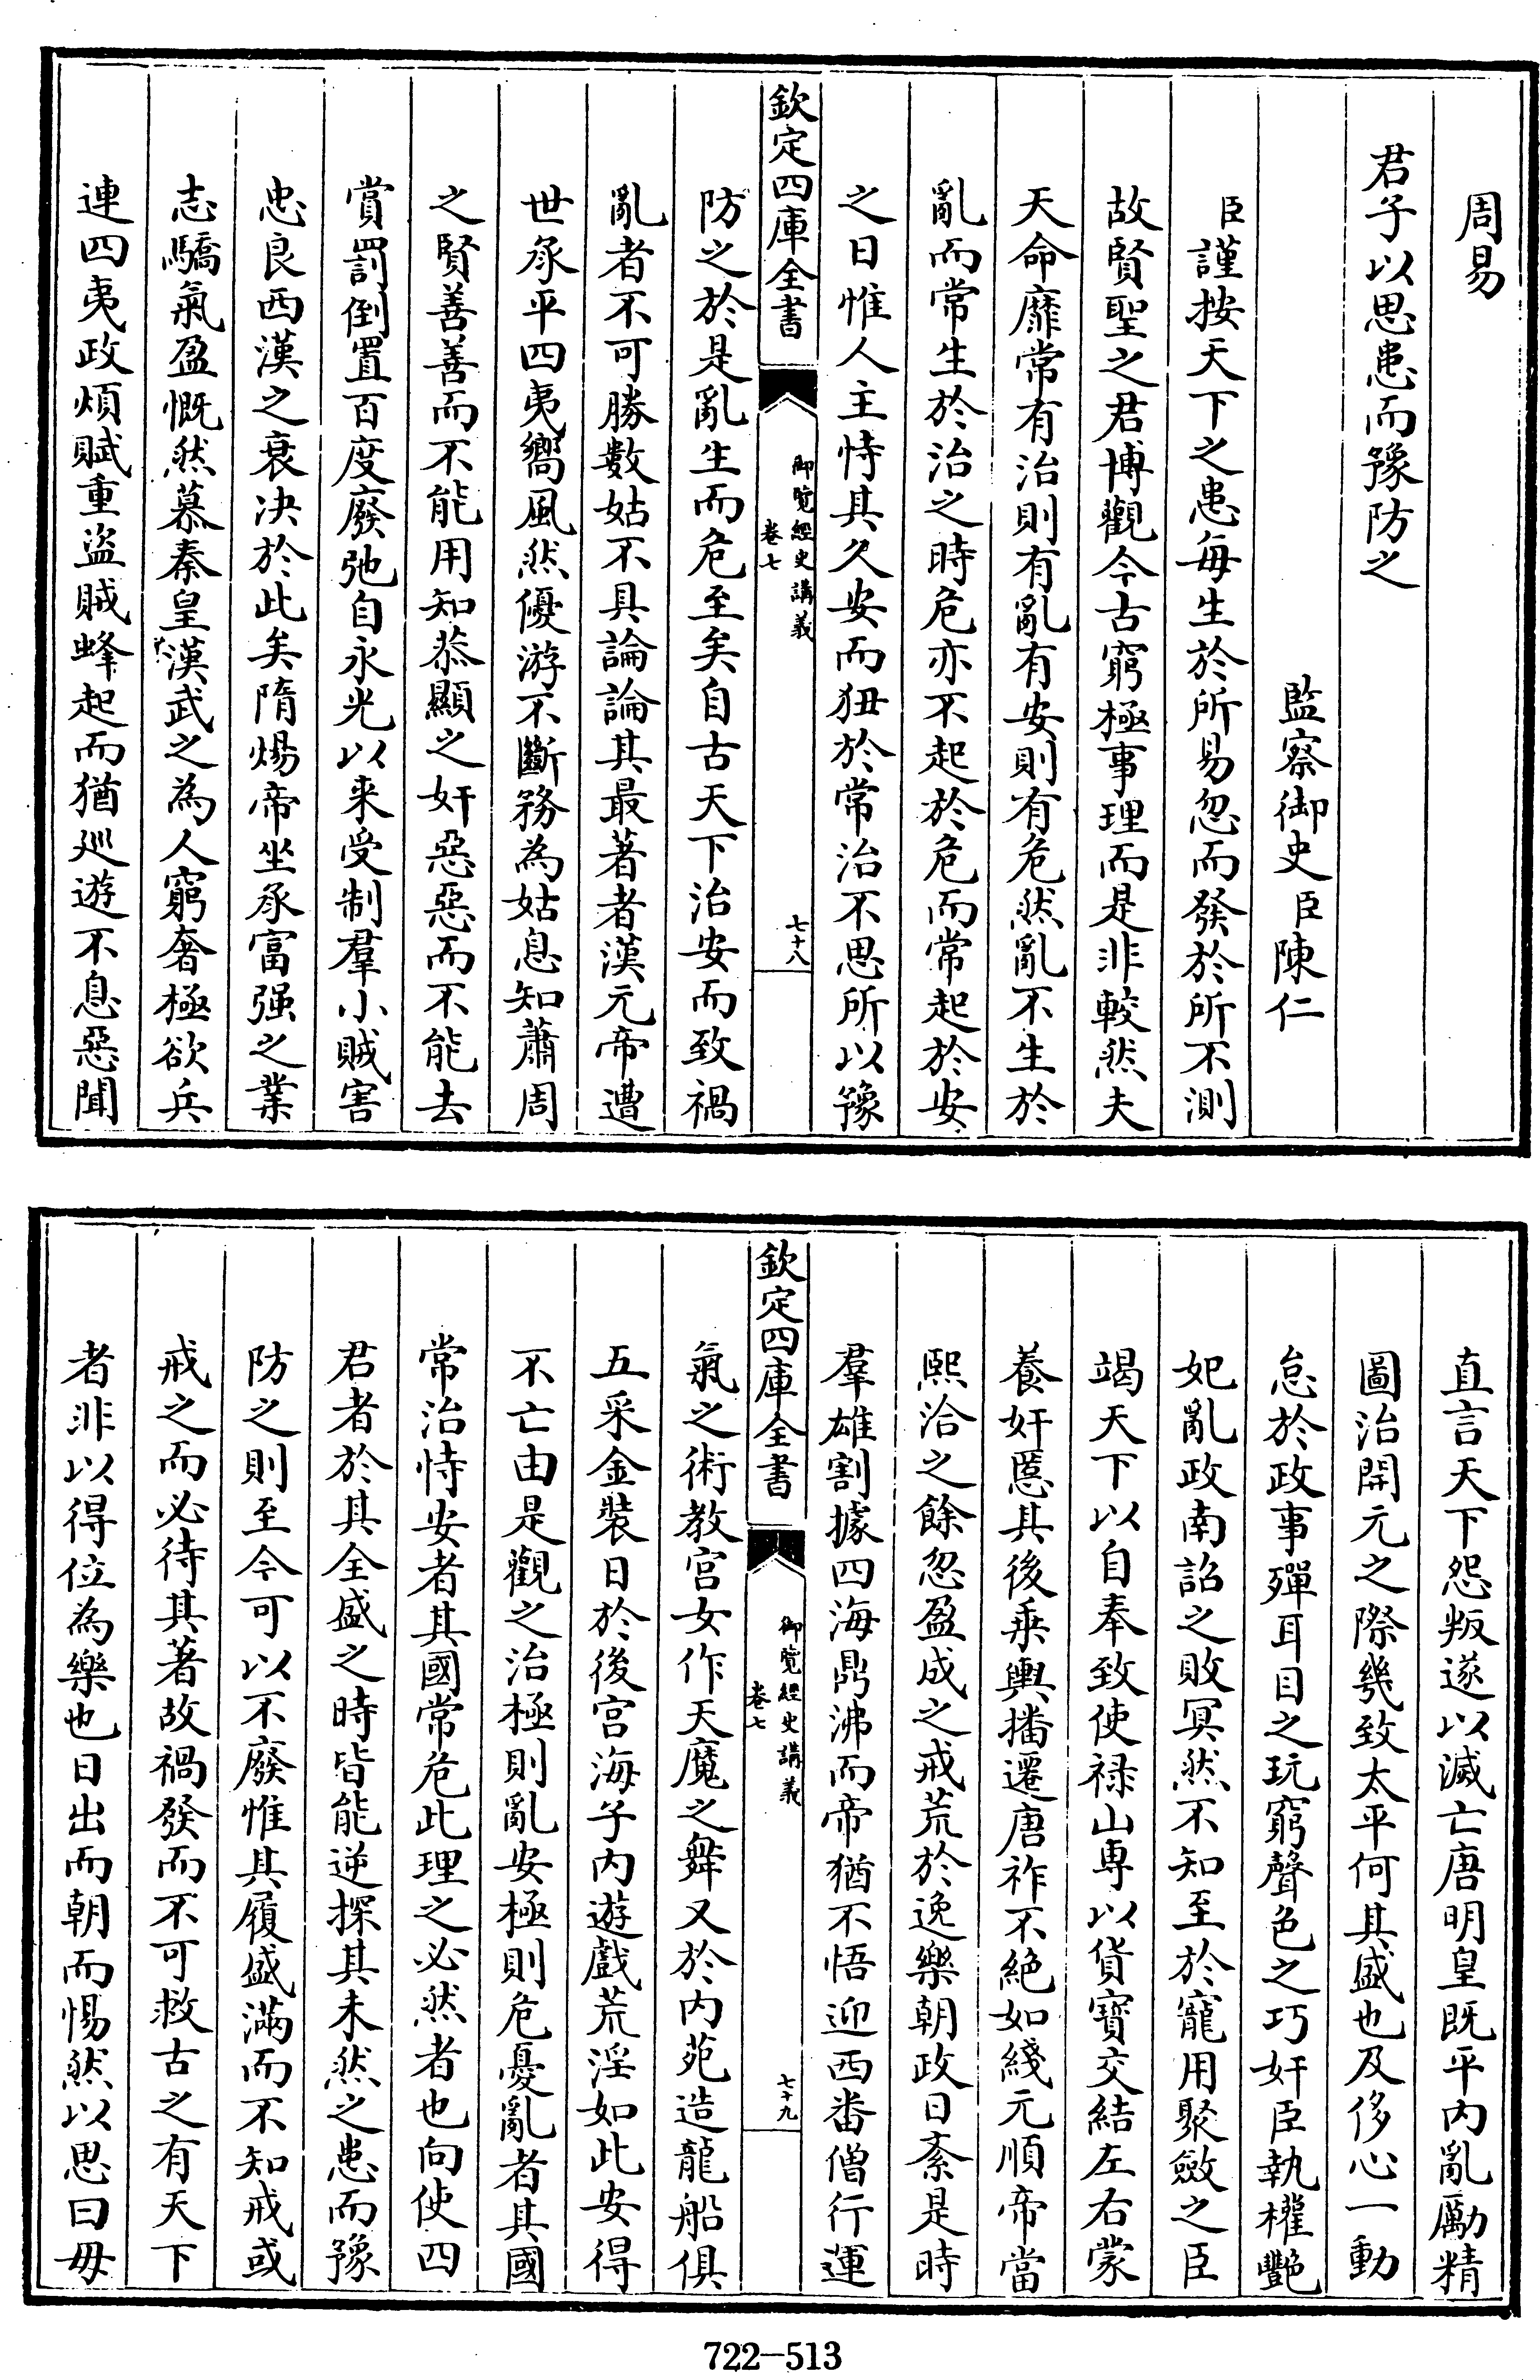 周易
君子以思患而豫防之
監察御史臣陳仁
臣謹按天下之患每生於所易忽而發於所不測
故賢聖之君博觀今古窮極事理而是非較然夫
天命靡常有治則有亂有安則有危然亂不生於
亂而常生於治之時危亦不起於危而常起於安
之日惟人主恃其久安而狃於常治不思所以豫
欽定四庫全書
御覽經史講義
卷七
七十八
防之於是亂生而危至矣自古天下治安而致禍
亂者不可勝數姑不具論論其最著者漢元帝遭
世承平四夷嚮風然優游不斷務為姑息知蕭周
之賢善善而不能用知恭顯之奸惡惡而不能去
賞罰倒置百度廢弛自永光以來受制羣小賊害
忠良西漢之衰決於此矣隋煬帝坐承富强之業
志驕氣盈慨然慕秦皇漢武之為人窮奢極欲兵
連四夷政煩賦重盜賊蜂起而猶巡遊不息惡聞
直言天下怨叛遂以滅亡唐明皇既平内亂勵精
圖治開元之際幾致太平何其盛也及侈心一動
怠於政事殫耳目之玩窮聲色之巧奸臣執權艷
妃亂政南詔之敗冥然不知至於寵用聚斂之臣
竭天下以自奉致使禄山專以貨寶交結左右蒙
養奸慝其後乗輿播遷唐祚不絶如綫元順帝當
熙洽之餘忽盈成之戒荒於逸樂朝政日紊是時
羣雄割據四海鼎沸而帝猶不悟迎西番僧行運
欽定四庫全書
御覽經史講義
卷七
七十九
氣之術教宫女作天魔之舞又於内苑造龍船俱
五采金裝日於後宫海子内遊戲荒淫如此安得
不亡由是觀之治極則亂安極則危憂亂者其國
常治恃安者其國常危此理之必然者也向使四
君者於其全盛之時皆能逆探其未然之患而豫
防之則至今可以不廢惟其履盛滿而不知戒或
戒之而必待其著故禍發而不可救古之有天下
者非以得位為樂也日出而朝而惕然以思曰毋
722—513